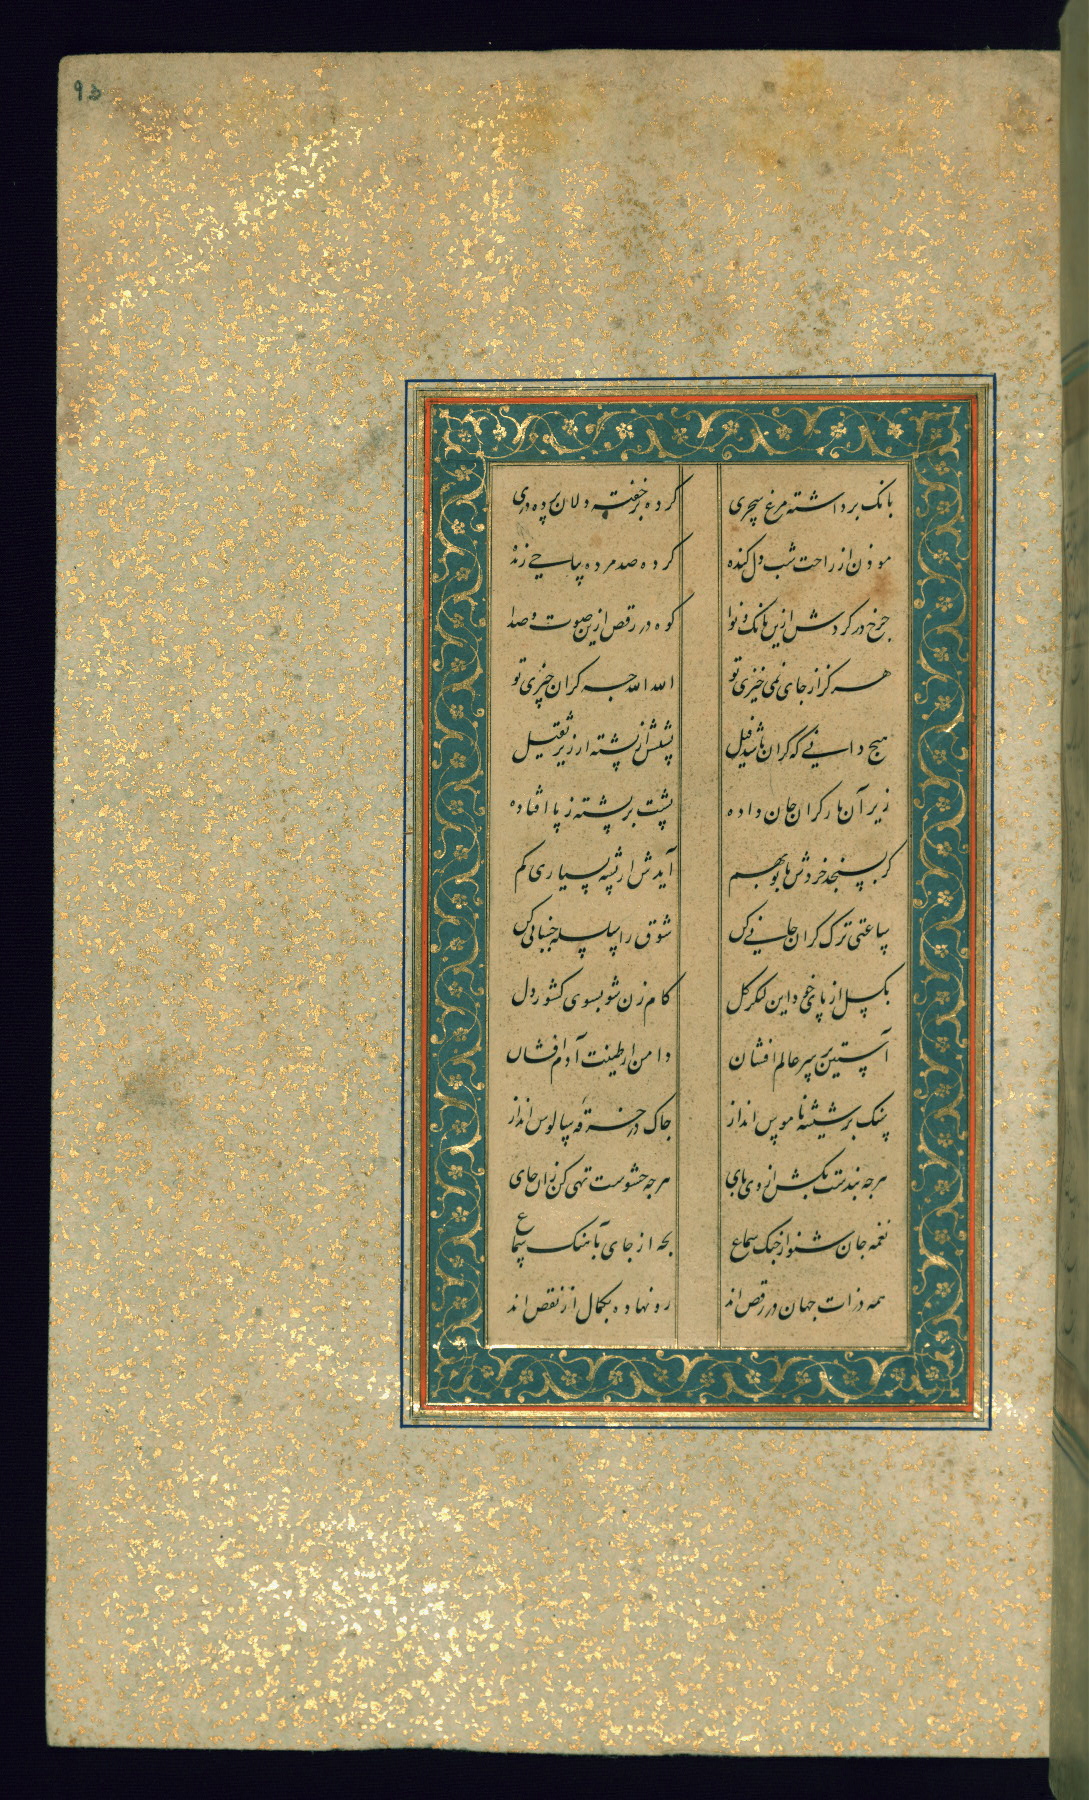 ۹۵
بانک برداشته مرغ سحری کرده بر خفته دلان پرده دری
موذن از راحت شب دل کنده کرده صد مرده بیاحی زنده
چرخ در کردش ازین بانک و نوا کوه در رقص ازین صوت و صدا
هرکز از جای نمی خیزی تو الله الله چه کران خیزی تو
هیچ دانی که کران باشد فیل پشتش از پشته ارزیر ثقیل
زیر آن بار کران جان داده پشت بر پشته ز پا افتاده
کر بسنجد خردش با تو بهم آیدش از پشه بسیاری کم
ساعتی ترک کران جانی کن شوق را سلسله جنبانی کن
بکسل از پای خود این لنکر کل کام زن شو بسوی کشور دل
آستین بر سر عالم افشان دامن از طینت آدم افشان
سنک بر شیشه ناموس انداز چاک در خرقه سالوس انداز
هرچه بندست بکش زوی پای هرچه حشوست تهی کن زان جای
نغمه جان شنو از چنک سماع بجه از جای بآهنک سماع
همه ذرات جهان در رقص اند رو نهاده بکمال از نقص اند